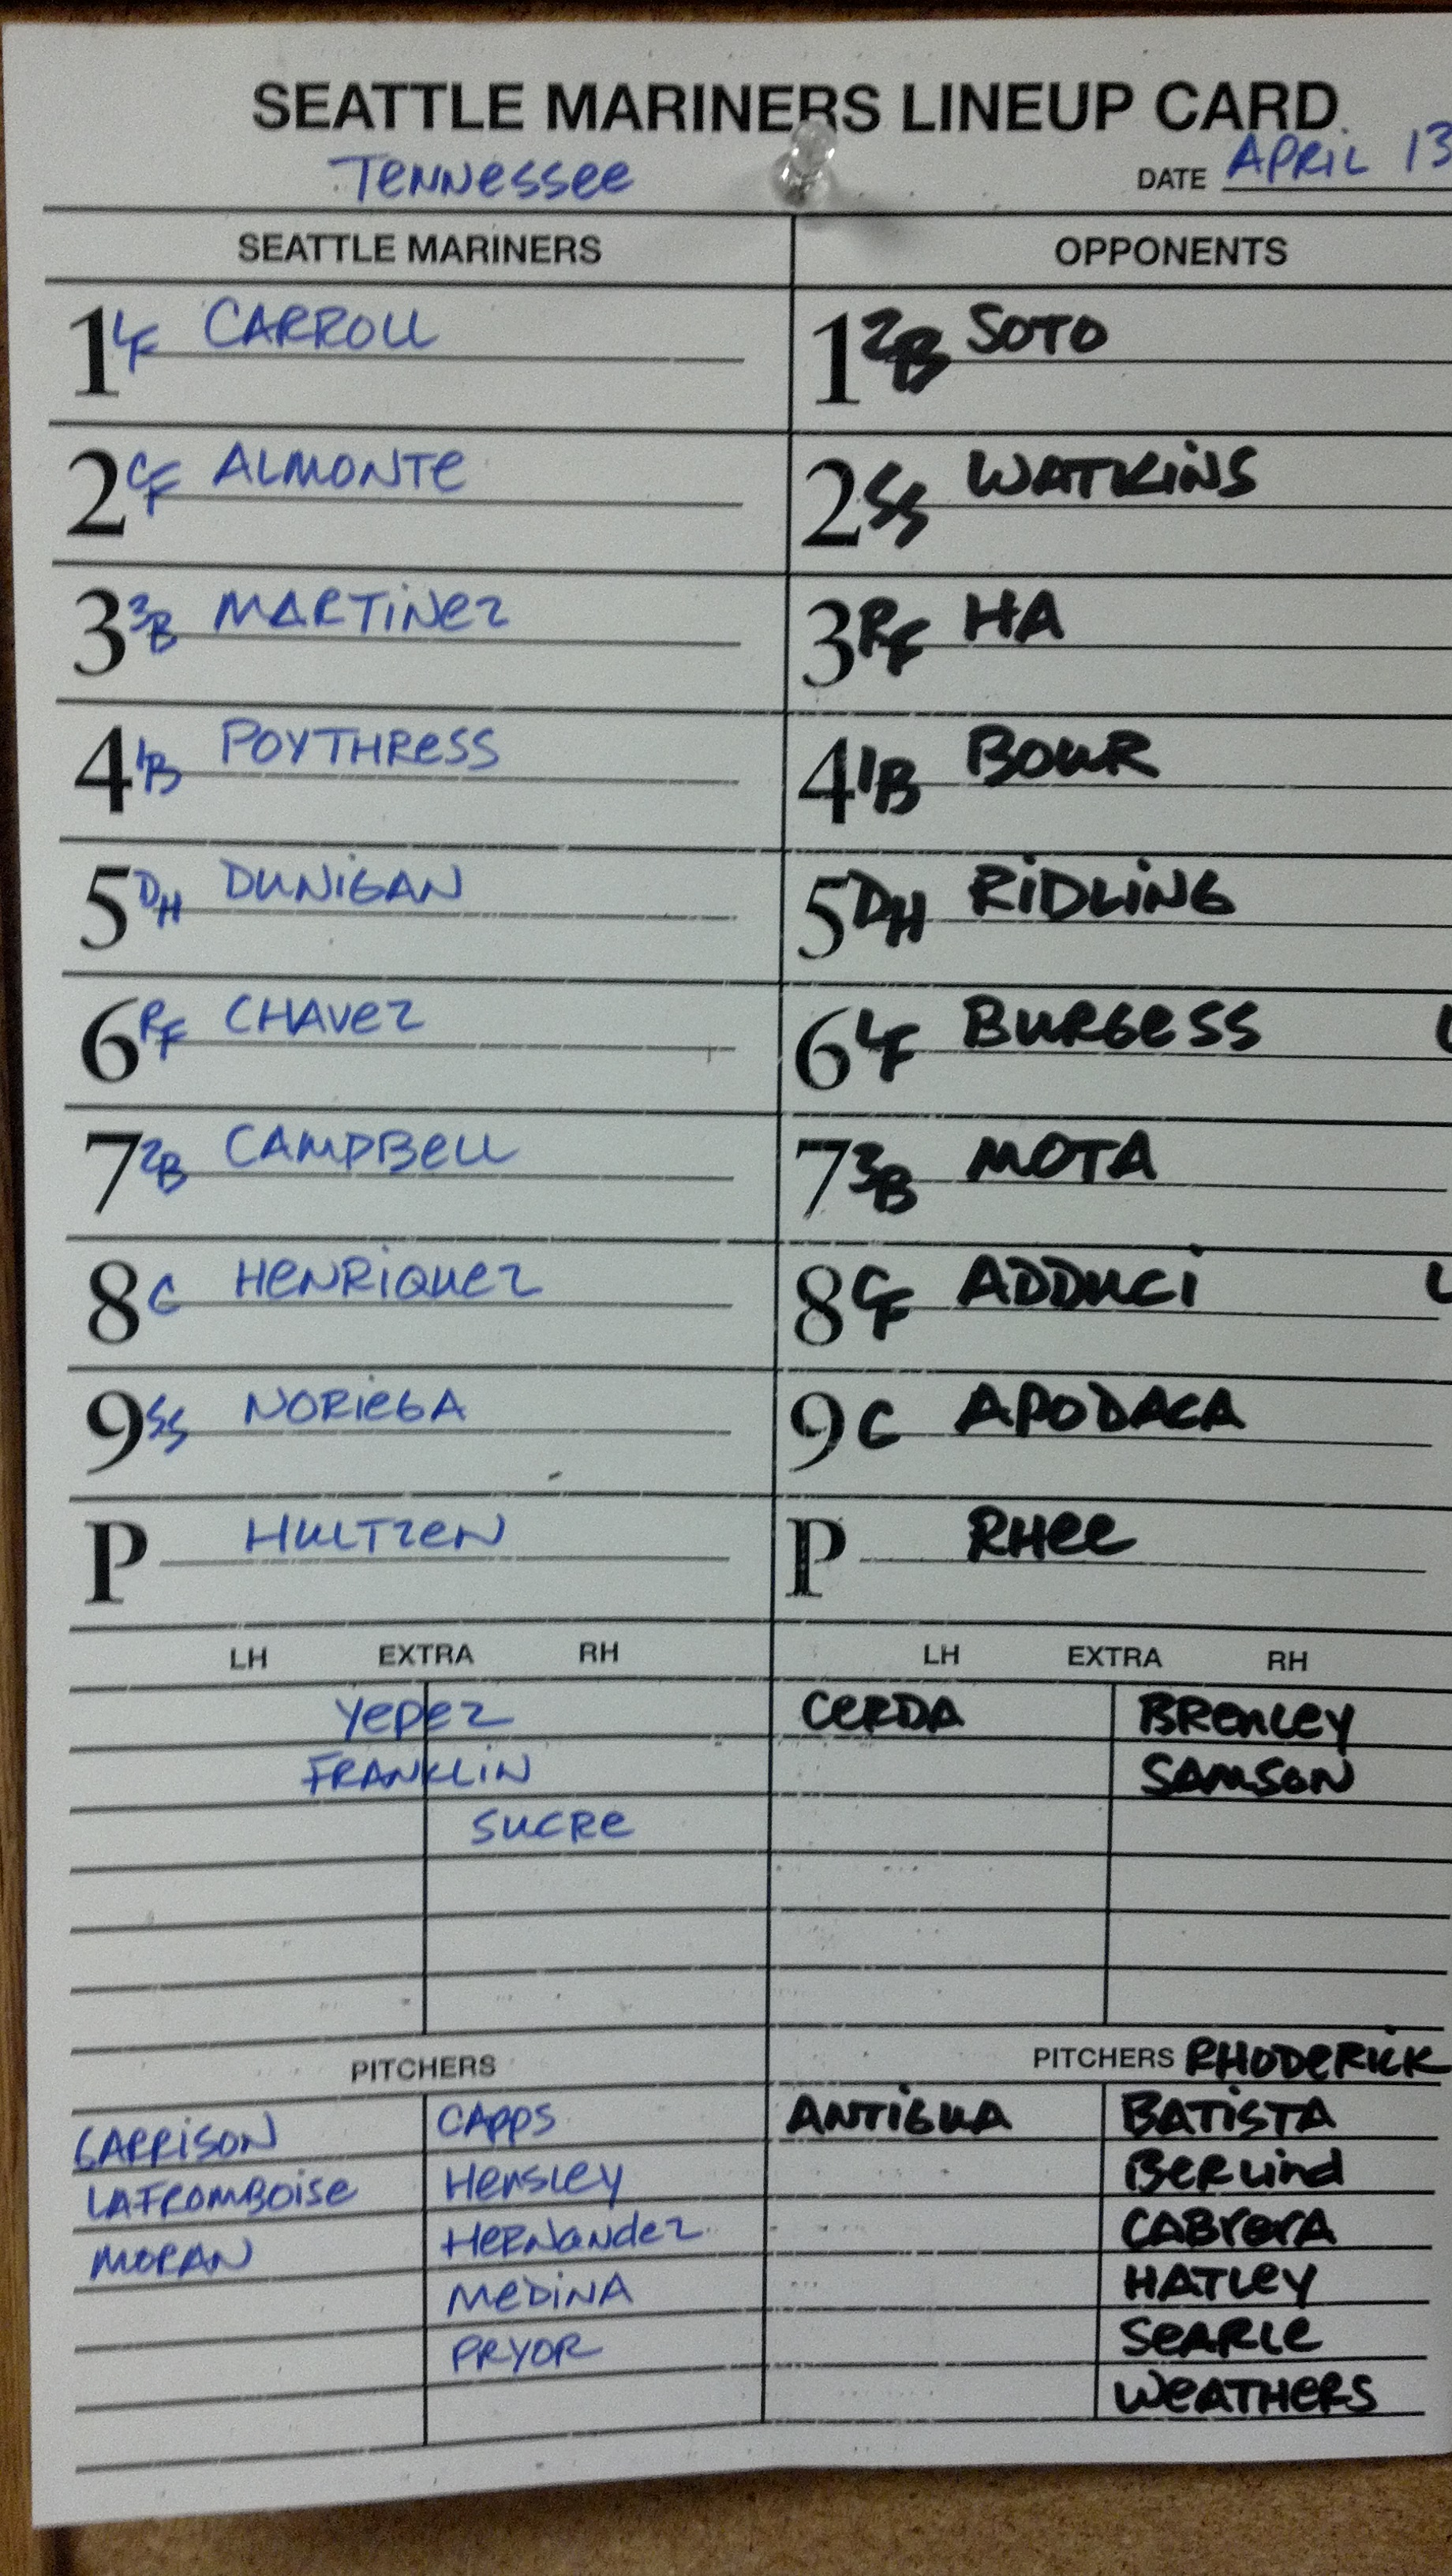 SEATTLE MARINERS LINEUP CARD
TENNESSEE DATE APRIL 13
SEATTLE MARINERS OPPONENTS
1 LF CARROLL 1 2B SOTO
2 CF ALMONTE 2 SS WATKINS
3 3B MARTINEZ 3 RF HA
4 1B POYTHRESS 4 1B BOUR
5 DH DUNIGAN 5 DH RIDLING
6 RF CHAVEZ 6 LF BURGESS
7 2B CAMPBELL 7 3B MOTA
8 C HENRIQUEZ 8 CF ADDUCI
9 SS NORIEGA 9 C APODACA
P HULTZEN P RHEE
LH EXTRA RH LH EXTRA RH
YEPEZ CERDA BRENLEY
FRANKLIN SAMSON
SUCRE
PITCHERS PITCHERS RHODERICK
GARRISON CAPPS ANTIGUA BATISTA
LAFROMBOISE HENSLEY BERLIND
MORAN HERNANDEZ CABRERA
MEDINA HATLEY
PRYOR SEARLE
WEATHERS